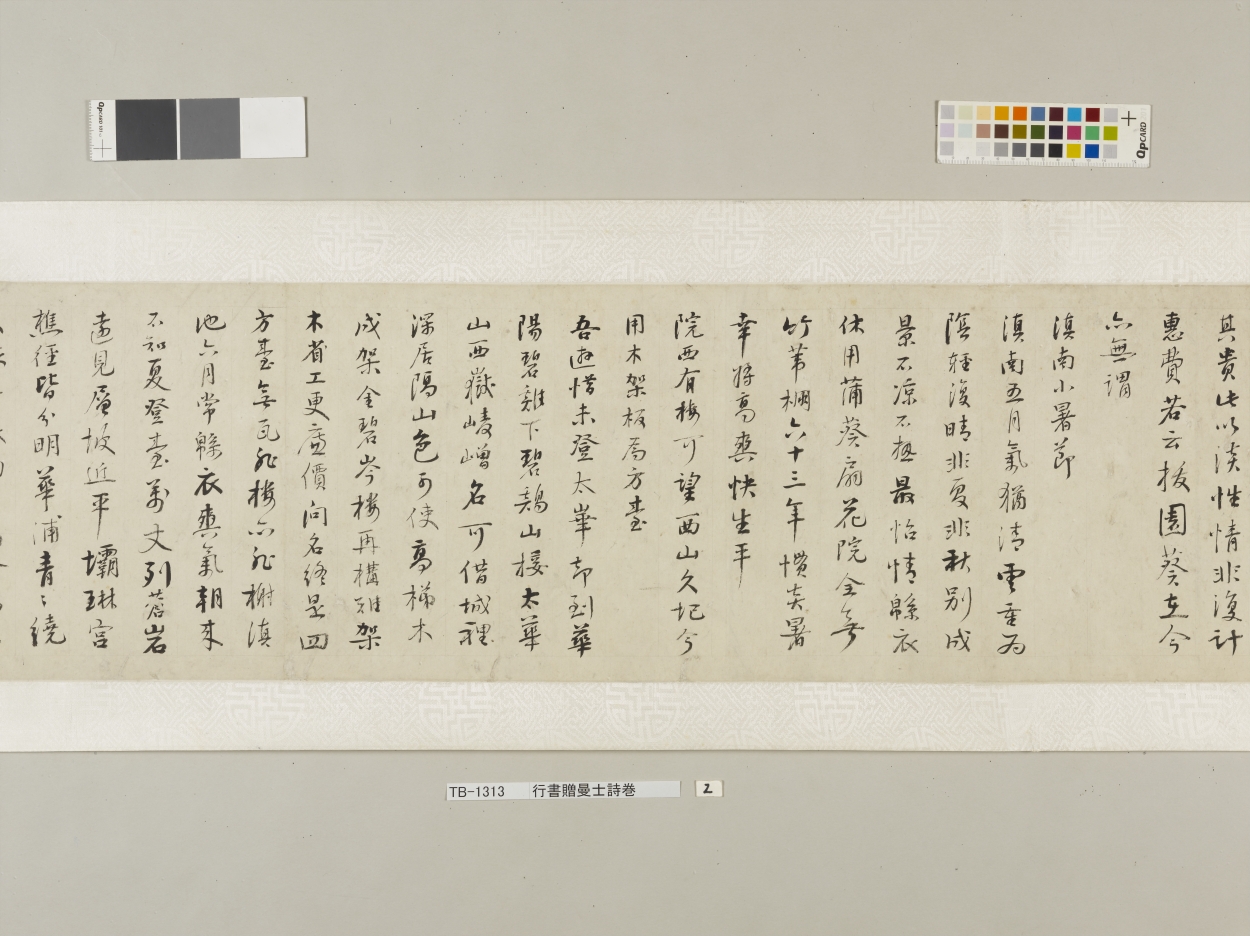 其貴比以淡性情非復計
惠費若云拔園葵在今
亦無謂
滇南小暑節
滇南五月氣猶清雲重為
陰輕復晴非夏非秋別成
景不涼不熱最怡情絺衣
休用蒲葵扇花院全無
竹茀棚六十三年慣炎暑
幸將高爽快生平
院西有樓可望西山久圮今
用木架板為方臺
吾遊惜未登太華却到華
陽碧雞下碧鷄山接太華
山西嶽崚嶒名可借城裡
深居隔山色可使高梯木
成架金碧岑樓再構難架
木省工更廉價問名終是四
方臺無瓦非樓亦非榭滇
池六月常絺衣爽氣朝來
不知夏登臺萬丈列蒼岩
遠見層坂近平壩琳宮
樵徑皆分明華浦青〻繞
TB-1313 行書贈曼士詩巻 2
QPCARD 101
QPCARD